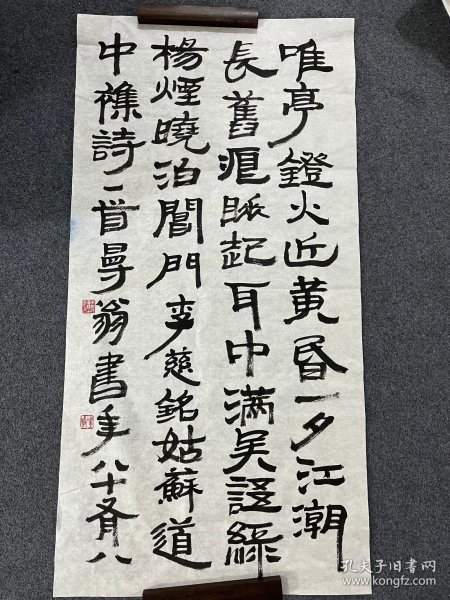 唯亭鐙火近黄昏一夕江潮
長舊痕眠起耳中滿吴語綠
楊煙曉泊閶門李慈銘姑蘇道
中襍詩一首曼翁書年八十有八
孔夫子旧书网
www.kongfz.com